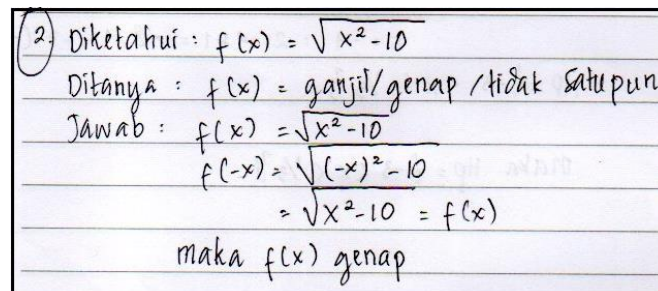 2. Diketahui : f(x) = √x²-10
Ditanya : f(x) = ganjil/genap/tidak satupun
Jawab : f(x) = √x²-10
f(-x) = √(-x)² - 10
= √x²-10 = f(x)
maka f(x) genap